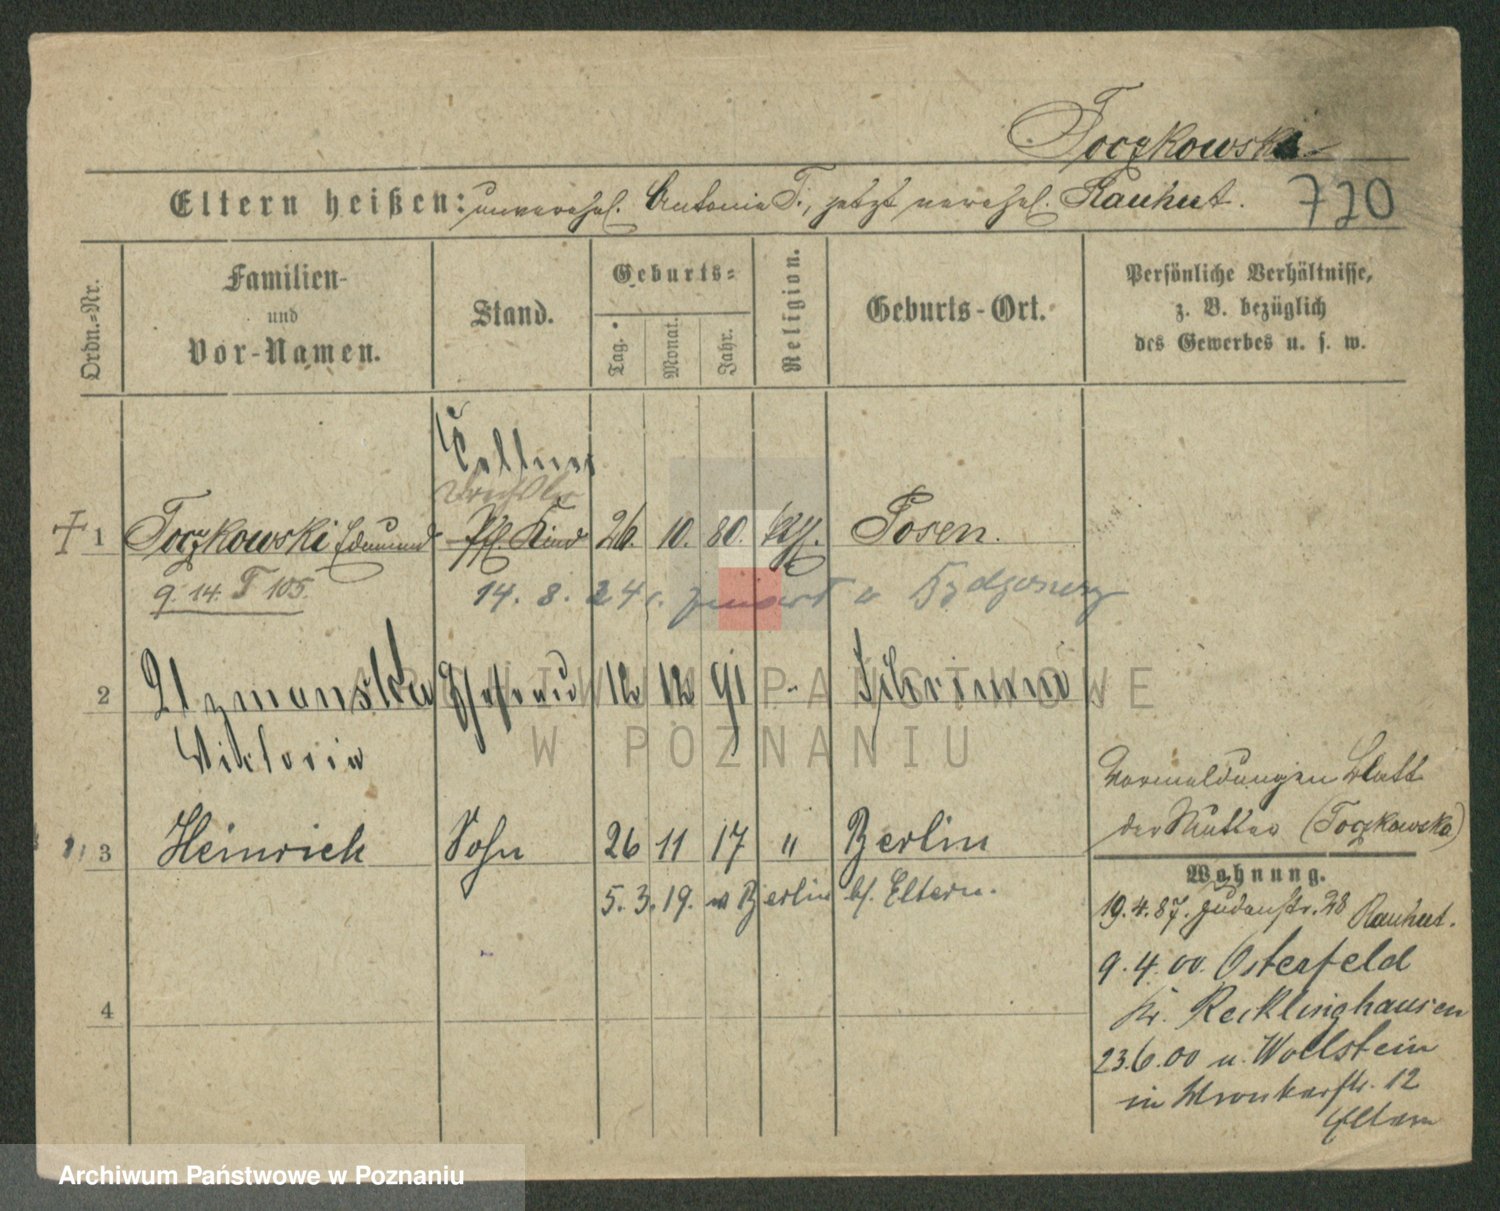 Toczkowski
Eltern heißen: unverehel. Antonie T., jetzt verehel. Rauhut. 720
Ordn.=Nr.
Familien-
und
Vor-Namen.
Stand.
Geburts=
Tag.
Monat.
Jahr.
Religion.
Geburts-Ort.
Persönliche Verhältnisse,
z. B. bezüglich
des Gewerbes u. s. w.
Kellner
1 Toczkowski Edmund Pfl. Kind 26. 10. 80. kath. Posen.
9. 14. T 105.
14. 8. 24 r. zmarł w Bydgoszczy
2 Ehefrau 12 12 91 "
Viktoria
Vormeldungen Blatt
der Mutter (Toczkowska)
3 Heinrich Sohn 26 11 17 " Berlin
5. 3. 19. n Berlin bf. Eltern.
Wohnung.
19. 4. 87. Judenstr. 28 Rauhut.
9. 4. 00. Osterfeld
Kr. Recklinghausen
23. 6. 00 v. Wollstein
in Wronkerstr. 12
Eltern
4
ARCHIWUM PAŃSTWOWE
W POZNANIU
Archiwum Państwowe w Poznaniu